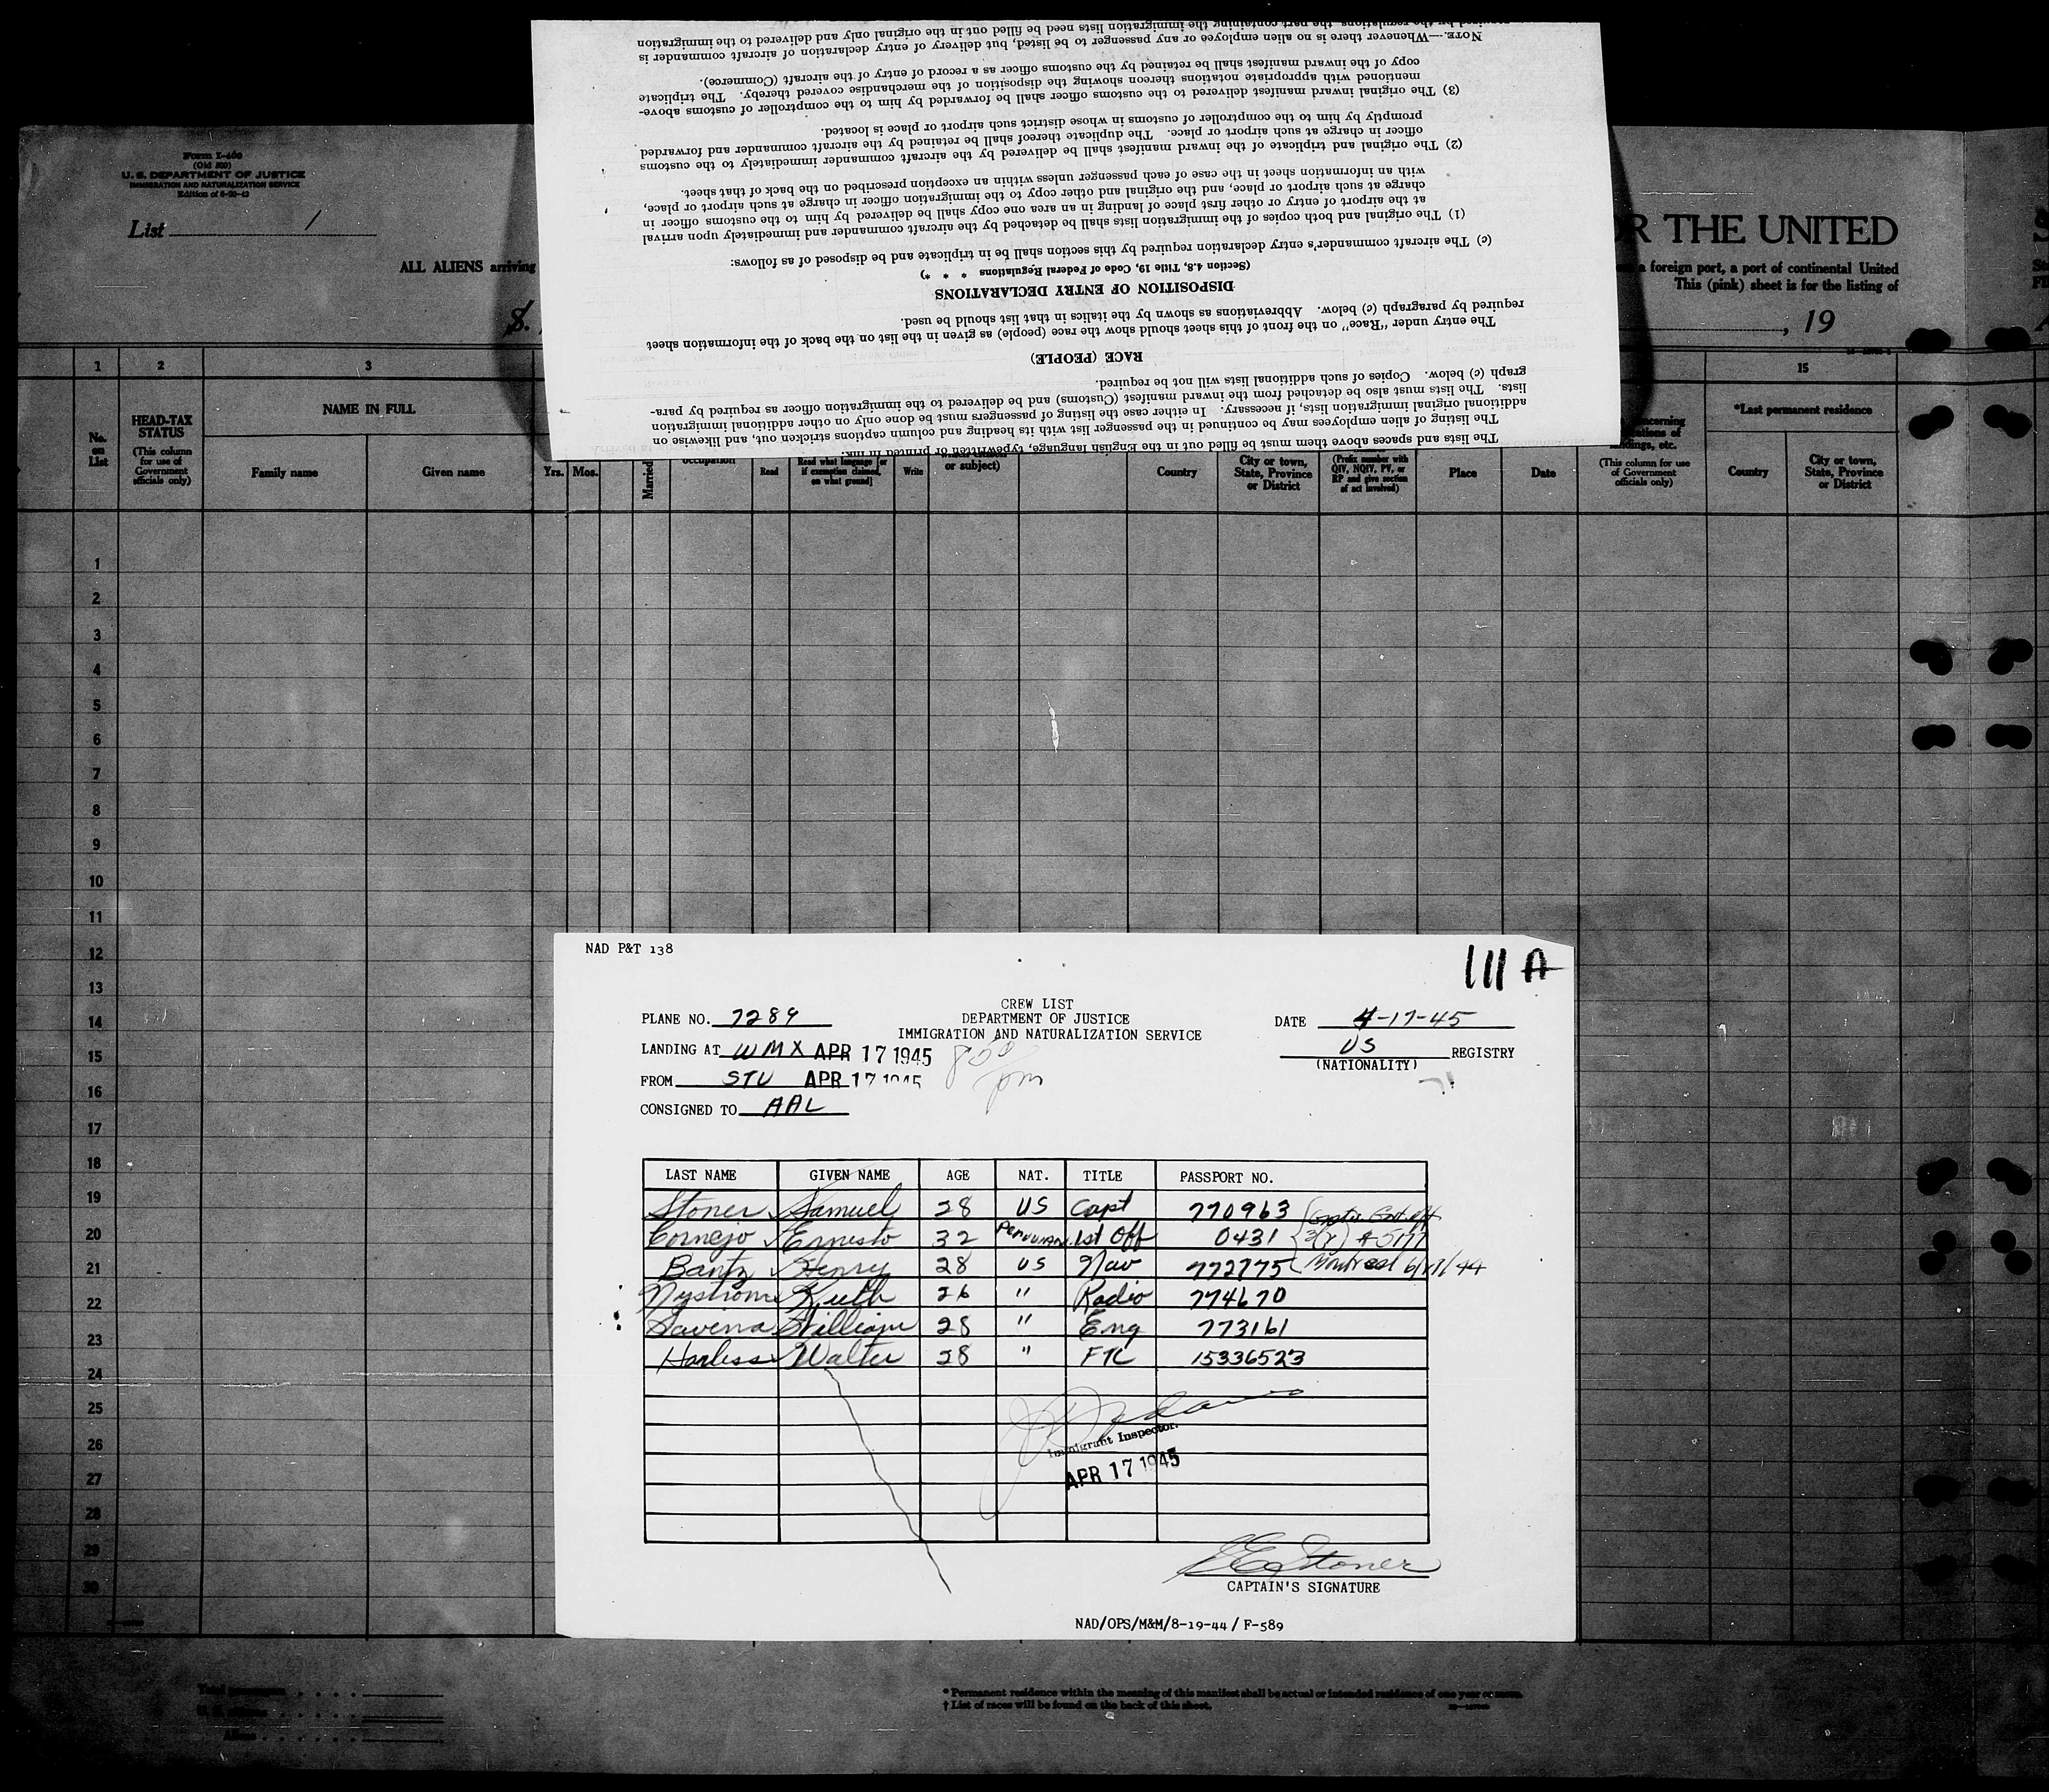 NOTE.—Whenever there is no alien employee or any passenger to be listed, but delivery of entry declaration of aircraft commander is
required by the regulations, the part containing the immigration lists need be filled out in the original only and delivered to the immigration
(3) The original inward manifest delivered to the customs officer shall be forwarded by him to the comptroller of customs above-
mentioned with appropriate notations thereon showing the disposition of the merchandise covered thereby. The triplicate
copy of the inward manifest shall be retained by the customs officer as a record of entry of the aircraft (Commerce).
(2) The original and triplicate of the inward manifest shall be delivered by the aircraft commander immediately to the customs
officer in charge at such airport or place. The duplicate thereof shall be retained by the aircraft commander and forwarded
promptly by him to the comptroller of customs in whose district such airport or place is located.
(1) The original and both copies of the immigration lists shall be detached by the aircraft commander and immediately upon arrival
at the airport of entry or other first place of landing in an area one copy shall be delivered by him to the customs officer in
charge at such airport or place, and the original and other copy to the immigration officer in charge at such airport or place,
with an information sheet in the case of each passenger unless within an exception prescribed on the back of that sheet.
(c) The aircraft commander's entry declaration required by this section shall be in triplicate and be disposed of as follows:
(Section 4.8, Title 19, Code of Federal Regulations * * *)
DISPOSITION OF ENTRY DECLARATIONS
The entry under "Race" on the front of this sheet should show the race (people) as given in the list on the back of the information sheet
required by paragraph (c) below. Abbreviations as shown by the italics in that list should be used.
RACE (PEOPLE)
The listing of alien employees may be continued in the passenger list with its heading and column captions stricken out, and likewise on
additional original immigration lists, if necessary. In either case the listing of passengers must be done only on other additional immigration
lists. The lists must also be detached from the inward manifest (Customs) and be delivered to the immigration officer as required by para-
graph (c) below. Copies of such additional lists will not be required.
The lists and spaces above them must be filled out in the English language, typewritten or printed in ink.
Form I-466
(Old 500)
U. S. DEPARTMENT OF JUSTICE
IMMIGRATION AND NATURALIZATION SERVICE
List 1
R THE UNITED
ALL ALIENS arriving
a foreign port, a port of continental United
This (pink) sheet is for the listing of
S.
, 19
1 2 3 15
No. on List
HEAD-TAX STATUS
(This column for use of Government officials only)
NAME IN FULL
Family name Given name
Yrs. Mos.
Married
occupation
Read
Read what language [or if exemption claimed, on what ground]
Write
or subject)
Country
City or town, State, Province or District
(Prefix number with QIV, NQIV, PV, or RP and give section of act involved)
Place Date
(This column for use of Government officials only)
*Last permanent residence
Country
City or town, State, Province or District
1
2
3
4
5
6
7
8
9
10
11
12
13
14
15
16
17
18
19
20
21
22
23
24
25
26
27
28
29
30
NAD P&T 138
111 A
CREW LIST
PLANE NO. 7289 DEPARTMENT OF JUSTICE DATE 4-17-45
IMMIGRATION AND NATURALIZATION SERVICE
LANDING AT WMX APR 17 1945 US REGISTRY
pm (NATIONALITY)
FROM STU APR 17 1945
CONSIGNED TO AAL
LAST NAME GIVEN NAME AGE NAT. TITLE PASSPORT NO.
Stoner Samuel 28 US Capt 770963
Cornejo Ernesto 32 Peruvian 1st Off 0431
Bantz Henry 28 US Nav 772775 Montreal 6/27/44
Nystrom Keith 26 " Radio 774670
Savena William 28 " Eng 773161
Harless Walter 28 " FTC 15336523
Immigrant Inspector.
APR 17 1945
S E Stoner
CAPTAIN'S SIGNATURE
NAD/OPS/M&M/8-19-44 / F-589
* Permanent residence within the meaning of this manifest shall be actual or intended residence of one year or more.
† List of races will be found on the back of this sheet.